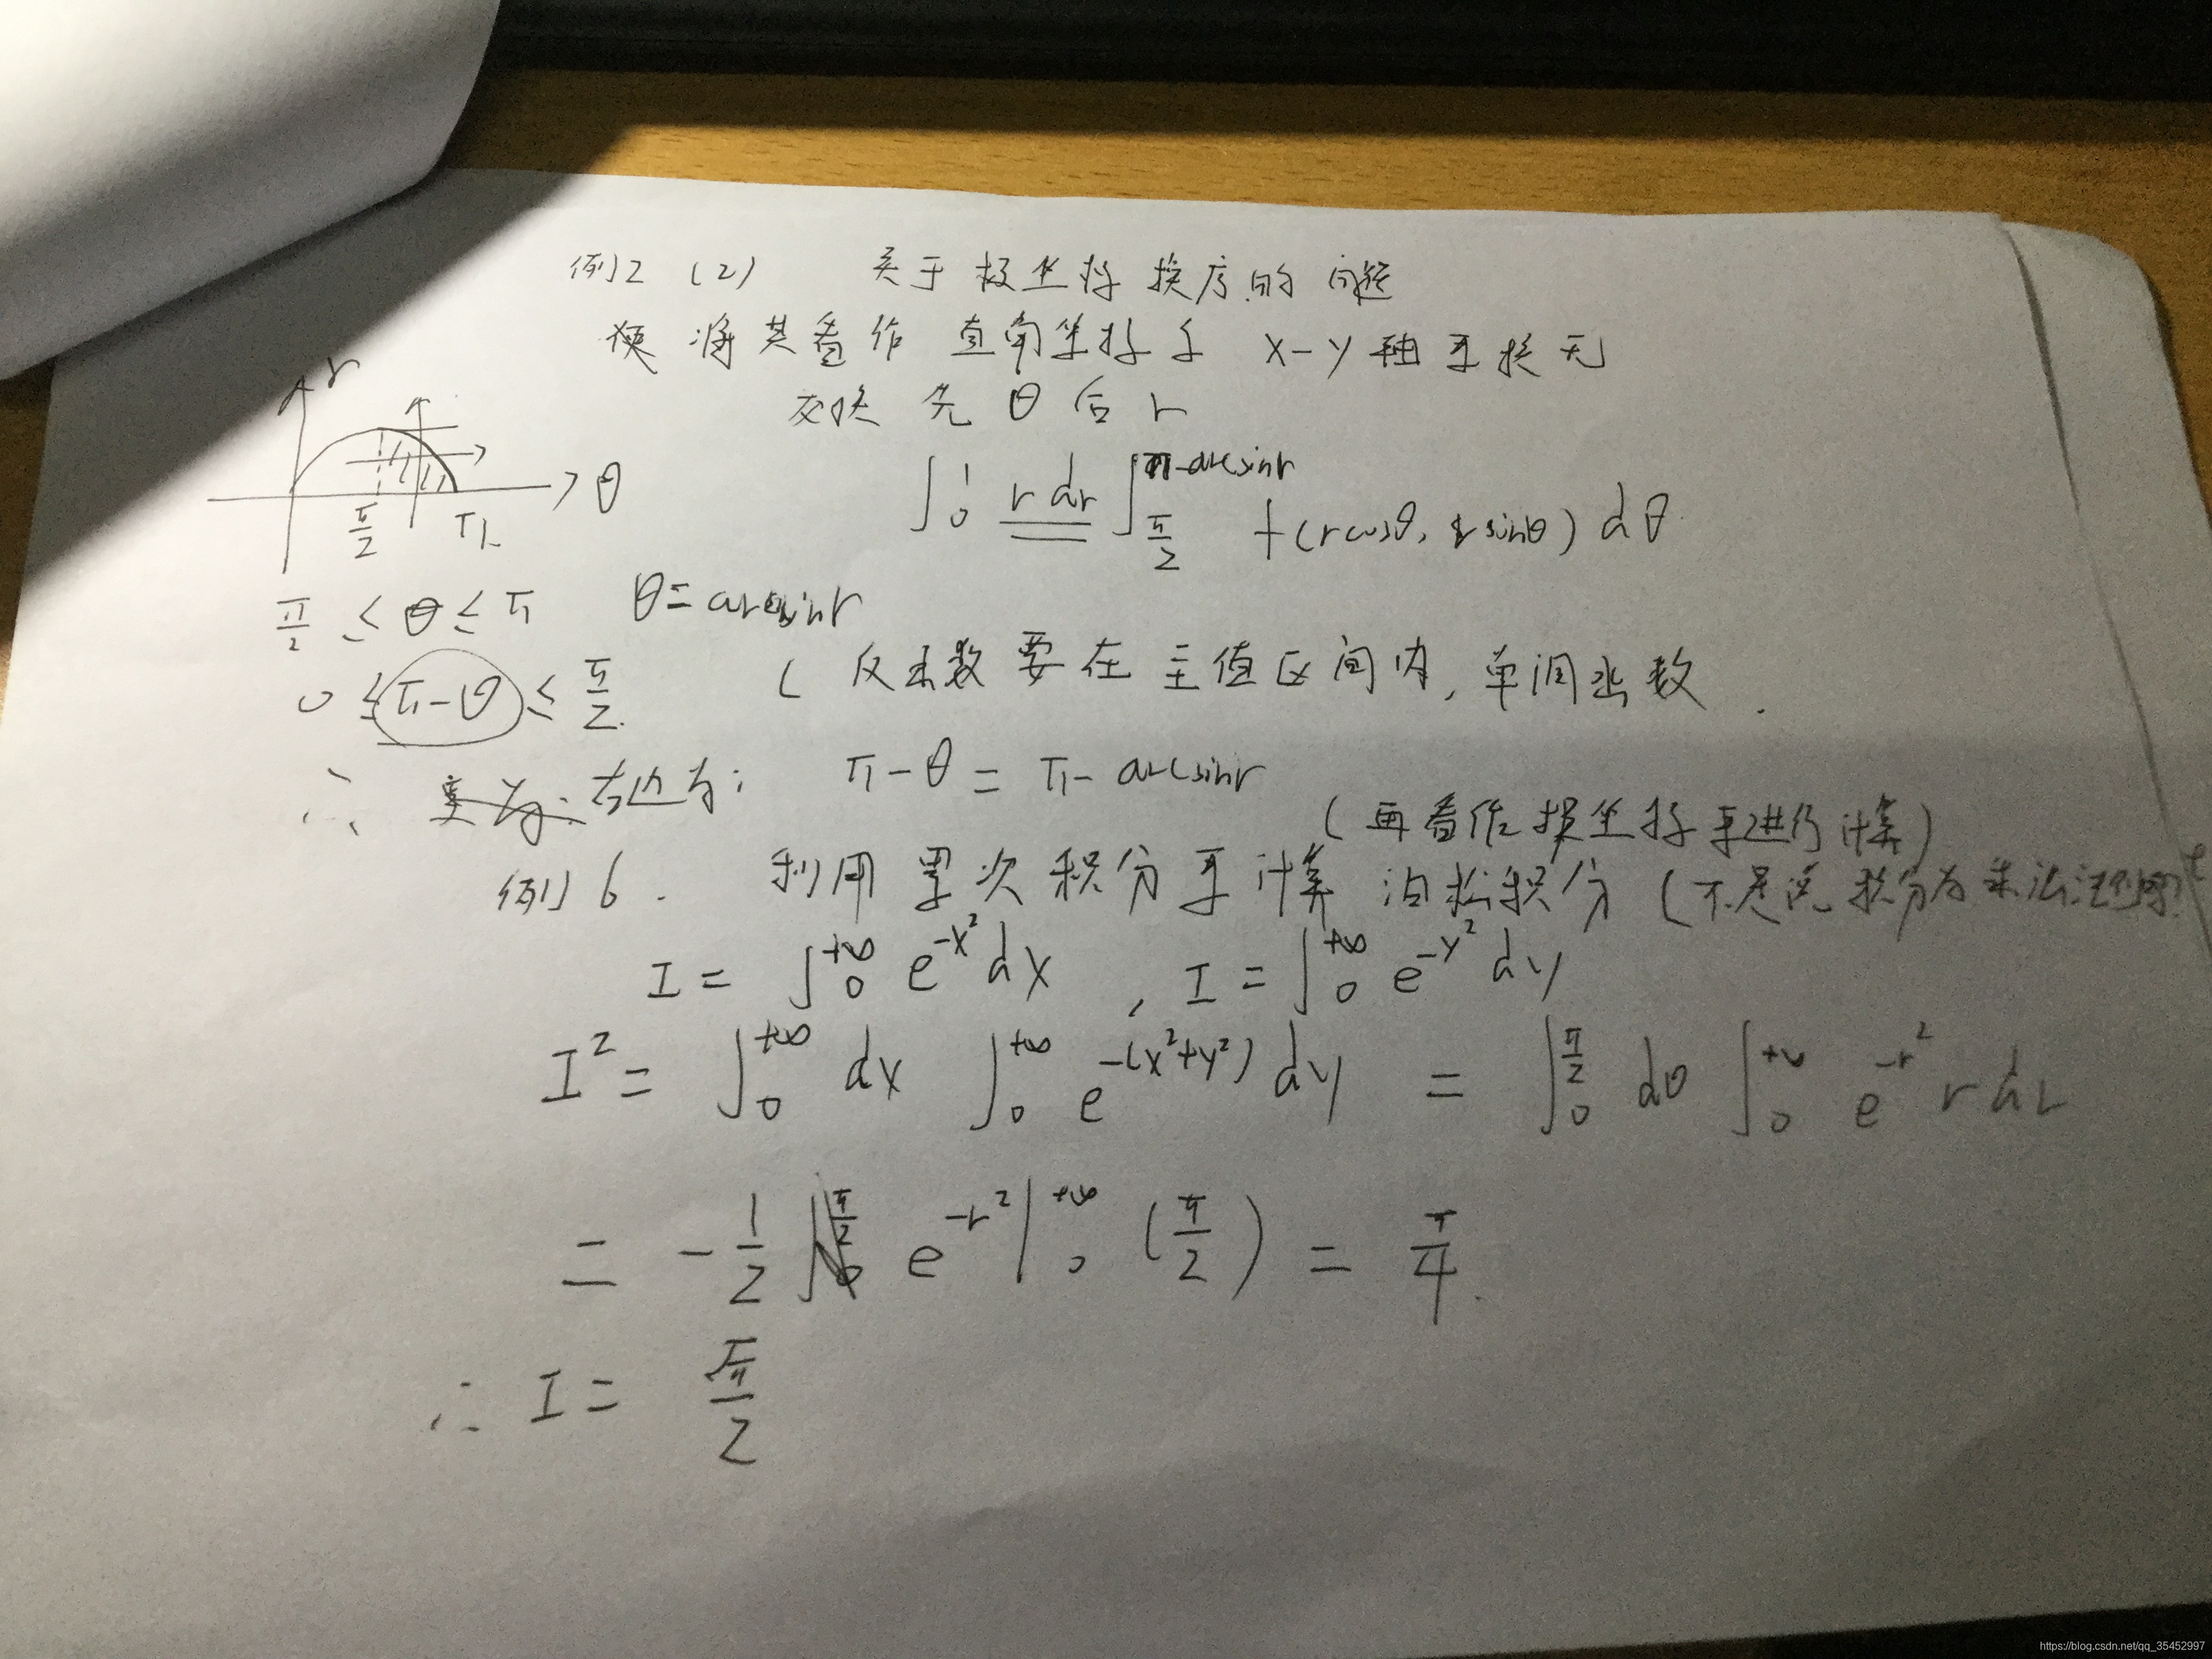 例2 (2) 关于极坐标换序的问题
便将其看作直角坐标系 x-y轴互换元
交换先θ后r
r
θ
π/2 π
∫₀¹ r dr ∫_{π/2}^{π-arcsinr} f(rcosθ, rsinθ) dθ
π/2 ≤ θ ≤ π θ = arcsinr
0 ≤ π-θ ≤ π/2 (反函数要在主值区间内, 单调函数.
∴ 右边为: π-θ = π-arcsinr
(再看作极坐标系进行计算)
例6. 利用累次积分来计算泊松积分 (不是说积分为乘法法则
I = ∫₀^{+∞} e^{-x²} dx , I = ∫₀^{+∞} e^{-y²} dy
I² = ∫₀^{+∞} dx ∫₀^{+∞} e^{-(x²+y²)} dy = ∫₀^{π/2} dθ ∫₀^{+∞} e^{-r²} r dr
= -1/2 e^{-r²}|₀^{+∞} (π/2) = π/4.
∴ I = √π/2
https://blog.csdn.net/qq_35452997